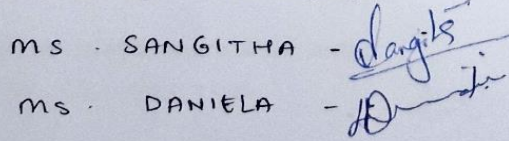 MS. SANGITHA - Sangits
MS. DANIELA -